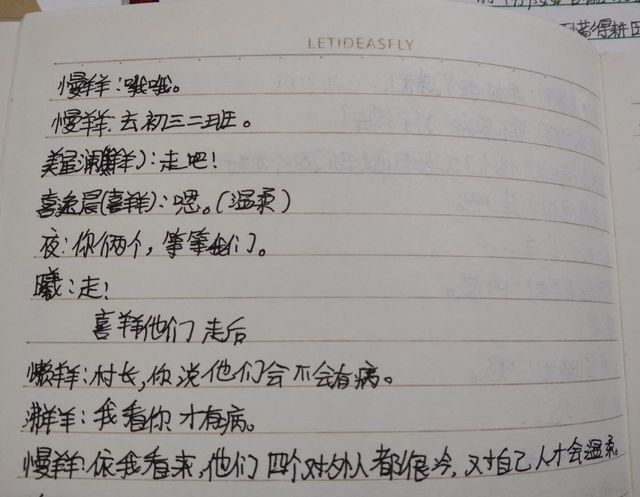 LETIDEASFLY
慢羊羊:哦哦。
慢羊羊:去初三二班。
美星澜(美羊羊):走吧!
喜逸晨(喜羊羊):嗯。(温柔)
夜:你俩个,等等我们。
曦:走!
喜羊羊他们走后
懒羊羊:村长,你说他们会不会有病。
沸羊羊:我看你才有病。
慢羊羊:依我看来,他们四个对外人都很冷,对自己人才会温柔。